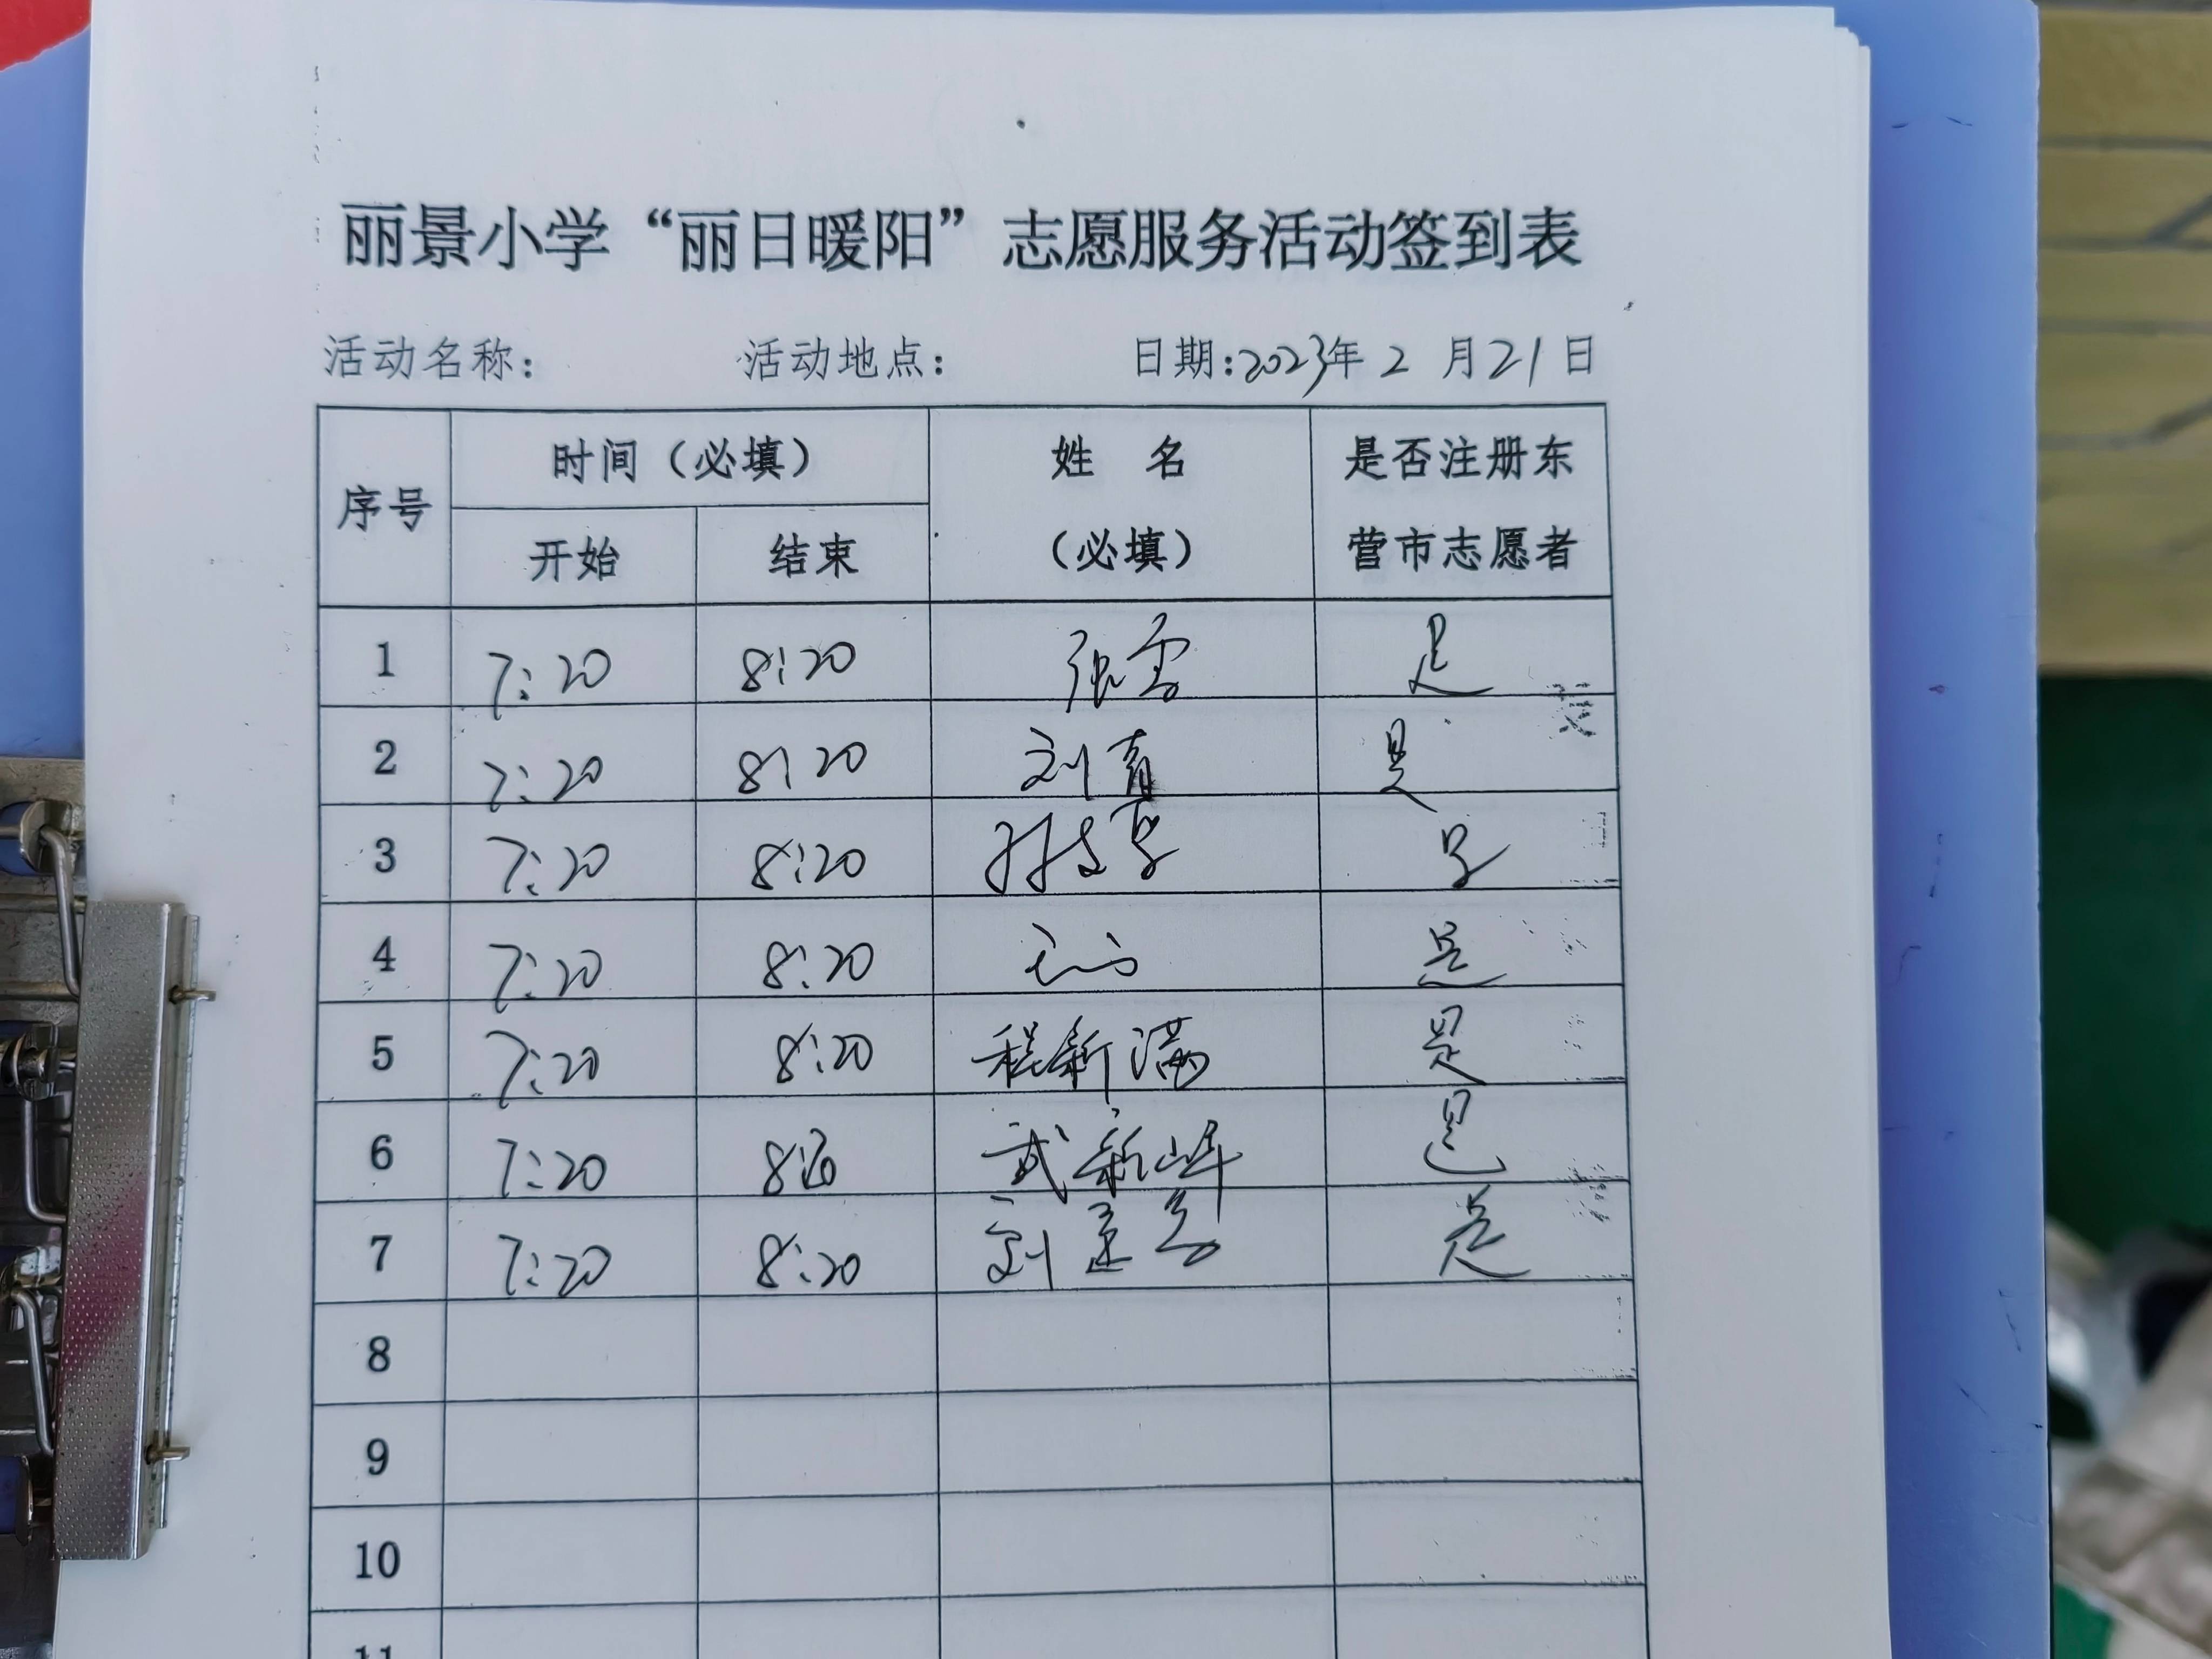 丽景小学“丽日暖阳”志愿服务活动签到表
活动名称： 活动地点： 日期：2023年 2 月 21 日
序号 时间（必填） 姓 名 是否注册东
开始 结束 （必填） 营市志愿者
1 7:20 8:20 张雪 是
2 7:20 8:20 刘青 是
3 7:20 8:20 是
4 7:20 8:20 是
5 7:20 8:20 程新满 是
6 7:20 8:20 武新峰 是
7 7:20 8:20 刘 是
8
9
10
11